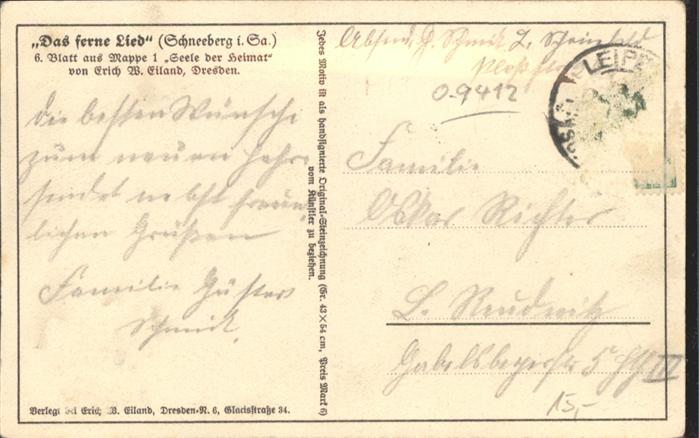 „Das ferne Lied“ (Schneeberg i. Sa.)
6. Blatt aus Mappe 1 „Seele der Heimat“
von Erich W. Eiland, Dresden.
Die besten Wünsche
zum neuen Jahre
sendet nebst freund-
lichen Grüßen
Familie Güster
Schmidt.
Verlegt bei Erich W. Eiland, Dresden-N. 6, Glacisstraße 34.
Jedes Motiv ist als handsignierte Original-Steinzeichnung (Gr. 43 × 54 cm, Preis Mark 6)
vom Künstler zu beziehen.
Absend. L.
0-9412
LEIPZ
Familie
Oskar Richter
L. Reudnitz
Gabelsbergerstr 5 III
15,-